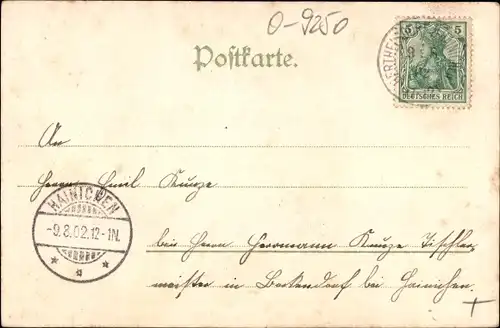 O-9250
Postkarte.
5 5
DEUTSCHES REICH
An
Herrn Emil Kunze
HAINICHEN
-9.8.02.12-1N.
bei Herrn Herrmann Kunze Tischler-
meister in Berkendorf bei Hainichen.